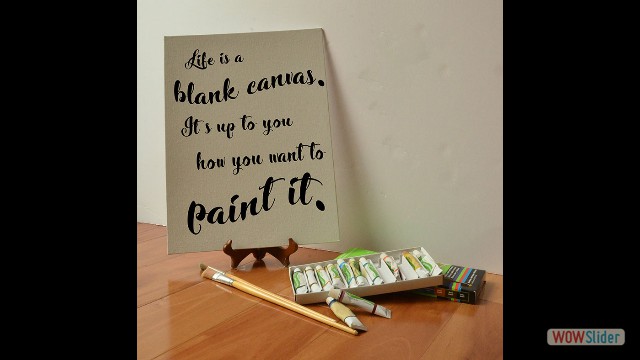 Life is a
blank canvas.
It's up to you
how you want to
paint it.
WOWSlider